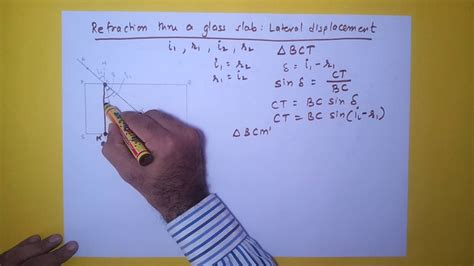 Refraction thru a glass slab: Lateral displacement
i₁, r₁, i₂, r₂
i₁ = r₂
r₁ = i₂
△BCT
δ = i₁ - r₁
sin δ = CT/BC
CT = BC sin δ
CT = BC sin(i₁-r₁)
△BCM'